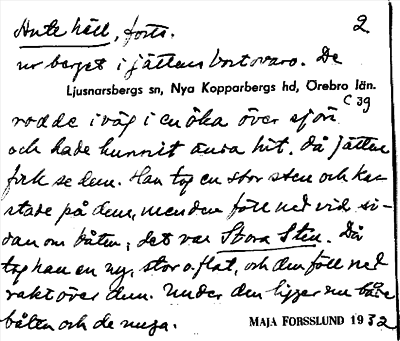 Hute häll, forts. 2
ur berget i jättens bortovaro. De
Ljusnarsbergs sn, Nya Kopparbergs hd, Örebro län.
C 39
rodde iväg i en öka över sjön
och hade hunnit ända hit. Då jätten
fick se dem. Han tog en stor sten och kas-
tade på dem, men den föll ned vid si-
dan om båten, det var Stora Sten. Då
tog han en ny, stor o. flat, och den föll ned
rakt över dem. Under den ligger nu både
båten och de unga.
MAJA FORSSLUND 1932